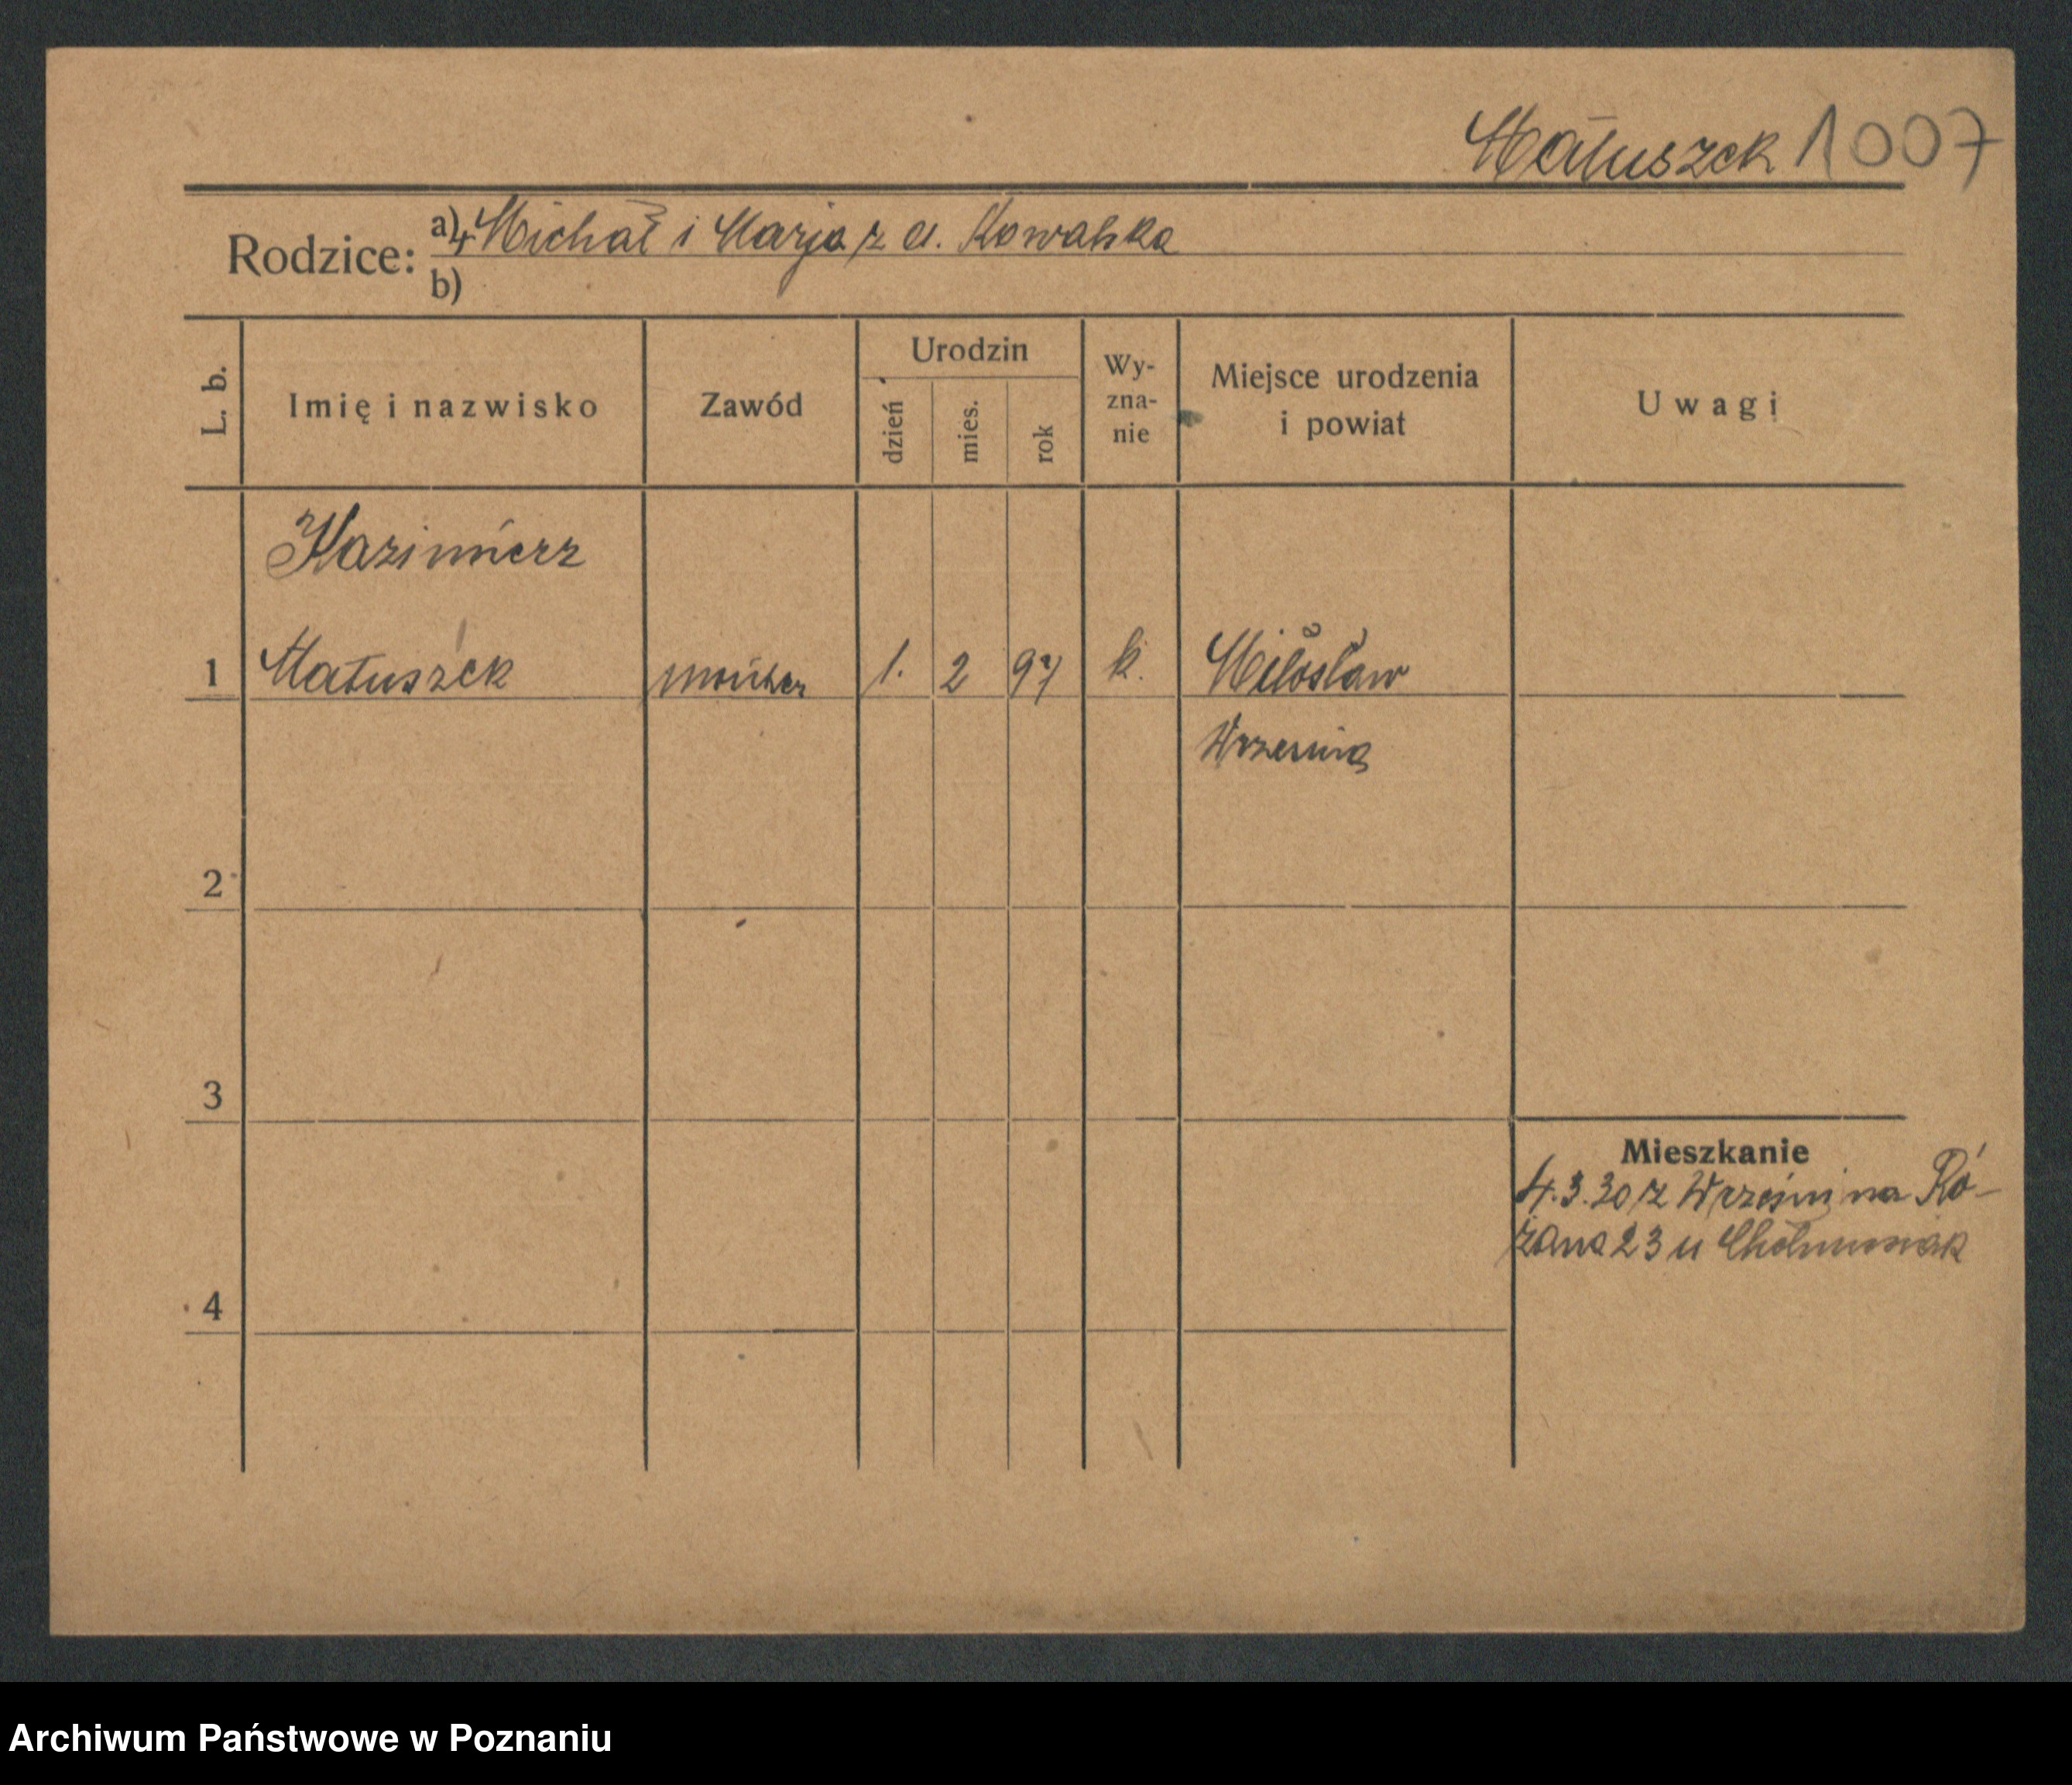 Matuszek 1007
Rodzice: a) Michał i Marja z d. Kowalska
b)
L. b. Imię i nazwisko Zawód Urodzin dzień mies. rok Wy-zna-nie Miejsce urodzenia i powiat Uwagi
Kazimierz
1 Matuszek monter 1. 2 97 k. Miłosław
Września
2
3
Mieszkanie
4.3.30 z Wrześni na Ró-
żana 23 u
4
Archiwum Państwowe w Poznaniu